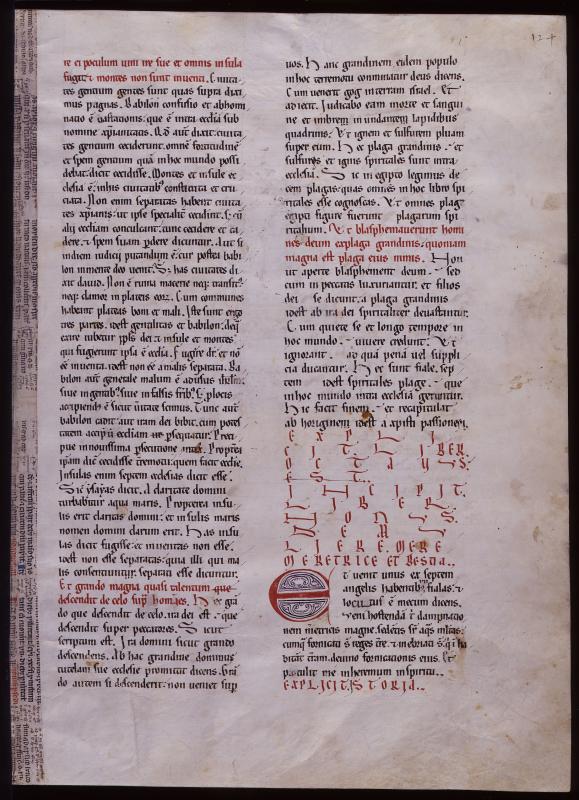 124
re ei poculum uini ire sue et omnis insula
fugit & montes non sunt inuenti. Ciuita-
tes gentium gentes sunt quas supra dixi
mus paganas. Babilon confusio et abhomi
natio & uastationis: que est intra ecclīa sub
nomine xp̄ianitatis. Q̄d aūt dixit: ciuita
tes gentium ceciderunt: omnē fortitudinē
et spem gentium quā in hoc mundo possi
debat: dicit cecidisse. Montes et insule ec
clesia ē: in his ciuitatib:
ciata. Non enim separatas habent ciuita
tes xp̄ianis: ut ipse specialit̄ cecidint. S; cū
alij eccliam conculcant: tunc cecidere et ca
dere: & spem suam p̄dere dicuntur. Aut si
in diem iudicii putandum ē: cur postea babi
lon in mente deo uenit. S; has ciuitates di
xit dauid. Non ē ruina macerie neq; transit:
neq; clamor in plateis eor̄. Cum communes
habeant plateas bom et mali. Iste sunt ergo
tres partes. idest gentilitas et babilon: de q̄
exire iubetur ipl̄s dei: & insule et montes
qui fugierunt ipsa ē ecclīa. Fugire dr̄: et nō
eē inuenta: idest non eē a malis separata. Ba
bilon aūt generale malum ē
siue in gentib; siue in falsis frīb;
accipiendū ē sicut ueritate scimus. Tunc aūt
babilon cadit: aut iram dei bibit: cum potes
tatem acceperit eccliam ne psequatur. Preci
pue in nouissima psecutione. Propterea
ipsam diē cecidisse tremotū: quem facit ecclīe.
Insulas enim septem eclesias dicit esse.
Sic ysayas dicit. A claritate domini
turbabitur aqua maris. Propterea insu-
lis erit claritas domini: et insulis maris
nomen domini clarum erit. Has insu
las dicit fugisse: et inuentas non esse.
idest non esse separatas: quia illi qui ma
lis consentiuntur: separati esse dicuntur.
Et grando magna quasi talentum que
descendit de celo sup̄ homines. Hec grā
do que descendit de celo: ira dei est: que
descendit super peccatores. Sicut
scriptum est. Ira domini sicut grando
descendens. Ab hac grandine dominus
tutelam sue ecclesie promittit dicens. Grā
do autem si descenderit: non ueniet sup̄
uos. Hanc grandinem eidem populo
in hoc terremotu comminatur deus dicens.
Cum uenerit gog in terram israel. Et
adiecit. Iudicabo eam morte et sangui
ne et imbrem inundantem lapidibus
quadrinis. Et ignem et sulfurem pluam
super eum. Hec plaga grandinis. et
sulfuris et ignis spiritales sunt intra
ecclesia. Sic in egypto legimus de
cem plagas: quas omnes in hoc libro spi
ritales esse cognoscas. Et omnes plage
egipti figure fuerunt plagarum spi
ritalium. Et blasphemauerunt homi
nes deum ex plaga grandinis: quoniam
magna est plaga eius nimis. Non
ut aperte blasphement deum. Sed
cum in peccatis luxuriantur: et filios
dei se dicunt: a plaga grandinis
idest ab ira dei spiritaliter deuastantur.
Cum quiete se et longo tempore in
hoc mundo uiuere credunt. Et
ignorant ad qua pena uel suppli
cia ducantur. Hec sunt fiale sep
tem idest spiritales plage. que
in hoc mundo intra ecclesia geruntur.
Hic facit finem: et recapitulat
ab horiginem idest a xpisti passionem.
EXPLI
CIT: LIBER
OCTAUS:
EST.
INCIPIT.
LIBER
NONUS.
DE MU
LIERE. MERE
MERETRICE ET BESTIA..
Et uenit unus ex septem
angelis habentib; fialas: &
locutus ē mecum dicens.
Veni hostendā t̄ damnatio
nem meretricis magne. sedentis sr̄ aq̄s multas:
cumq; fornicati s̄ reges terre. & inebriati s̄ q̄ inha
bitāt terram. de uino fornicationis eius. Et
pertulit me in heremum in spiritu..
EXPLICIT. ISTORIA..